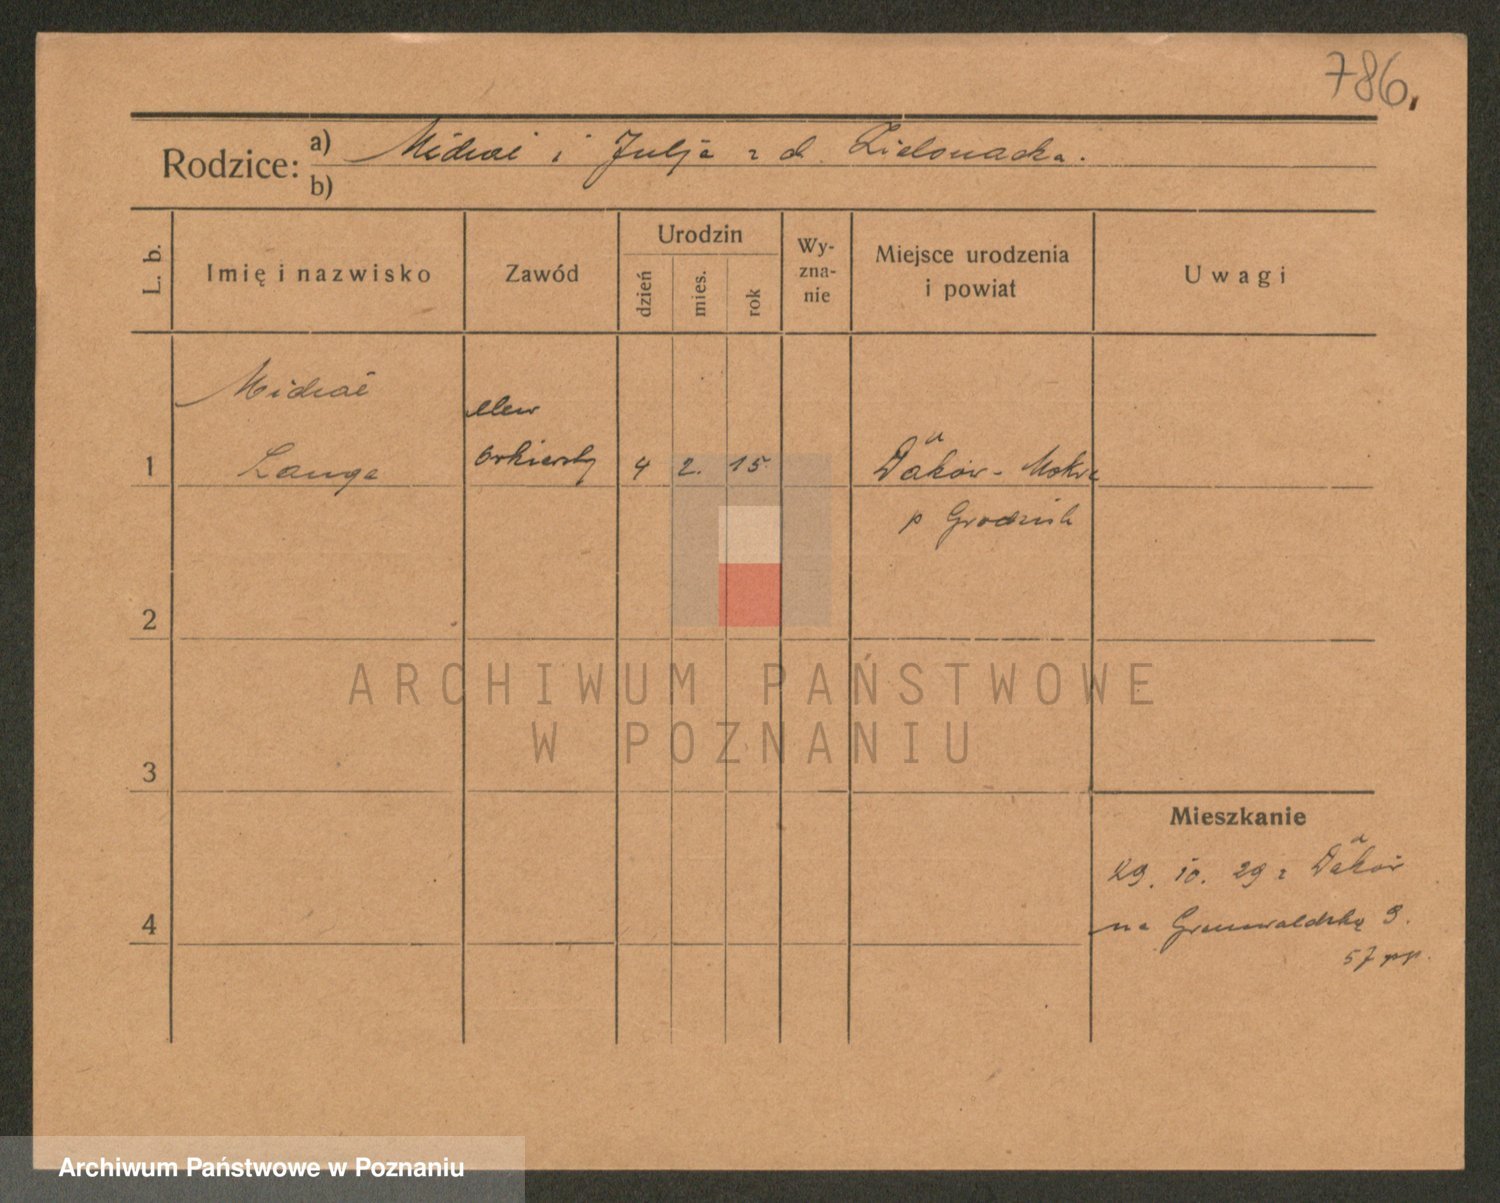 786.
Rodzice: a) Michał i Julja z d. Zielonacka.
b)
L. b. Imię i nazwisko Zawód Urodzin dzień mies. rok Wyznanie Miejsce urodzenia i powiat Uwagi
Michał
elew
1 Langa orkiestry 4 2. 15 Dąków-Mokre
p Grodzisk
2
ARCHIWUM PAŃSTWOWE
W POZNANIU
3
Mieszkanie
29. 10. 29 z Dąków
4 na Grunwaldzką 9.
57 pp.
Archiwum Państwowe w Poznaniu